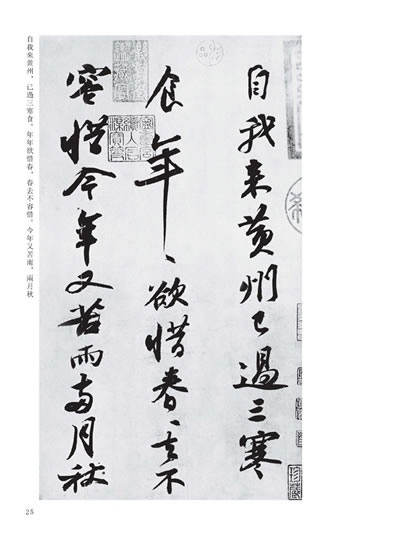 自我来黄州已過三寒
食年〻欲惜春〻去不
容惜今年又苦雨兩月秋
自我來黄州，已過三寒食。年年欲惜春，春去不容惜。今年又苦雨，兩月秋
25